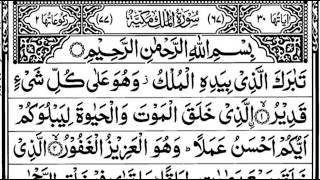 اٰیَاتُهَا ٣٠ (٦٧) سُوْرَةُ الْمُلْكِ مَكِّيَّةٌ (٧٧) رُكُوْعَاتُهَا ٢
بِسْمِ اللهِ الرَّحْمٰنِ الرَّحِيْمِ
تَبٰرَكَ الَّذِيْ بِيَدِهِ الْمُلْكُ ز وَهُوَ عَلٰى كُلِّ شَيْءٍ
قَدِيْرُ ۙ﴿١﴾ اِۨلَّذِيْ خَلَقَ الْمَوْتَ وَالْحَيٰوةَ لِيَبْلُوَكُمْ
اَيُّكُمْ اَحْسَنُ عَمَلًا ؕ وَهُوَ الْعَزِيْزُ الْغَفُوْرُ ۙ﴿٢﴾ الَّذِيْ